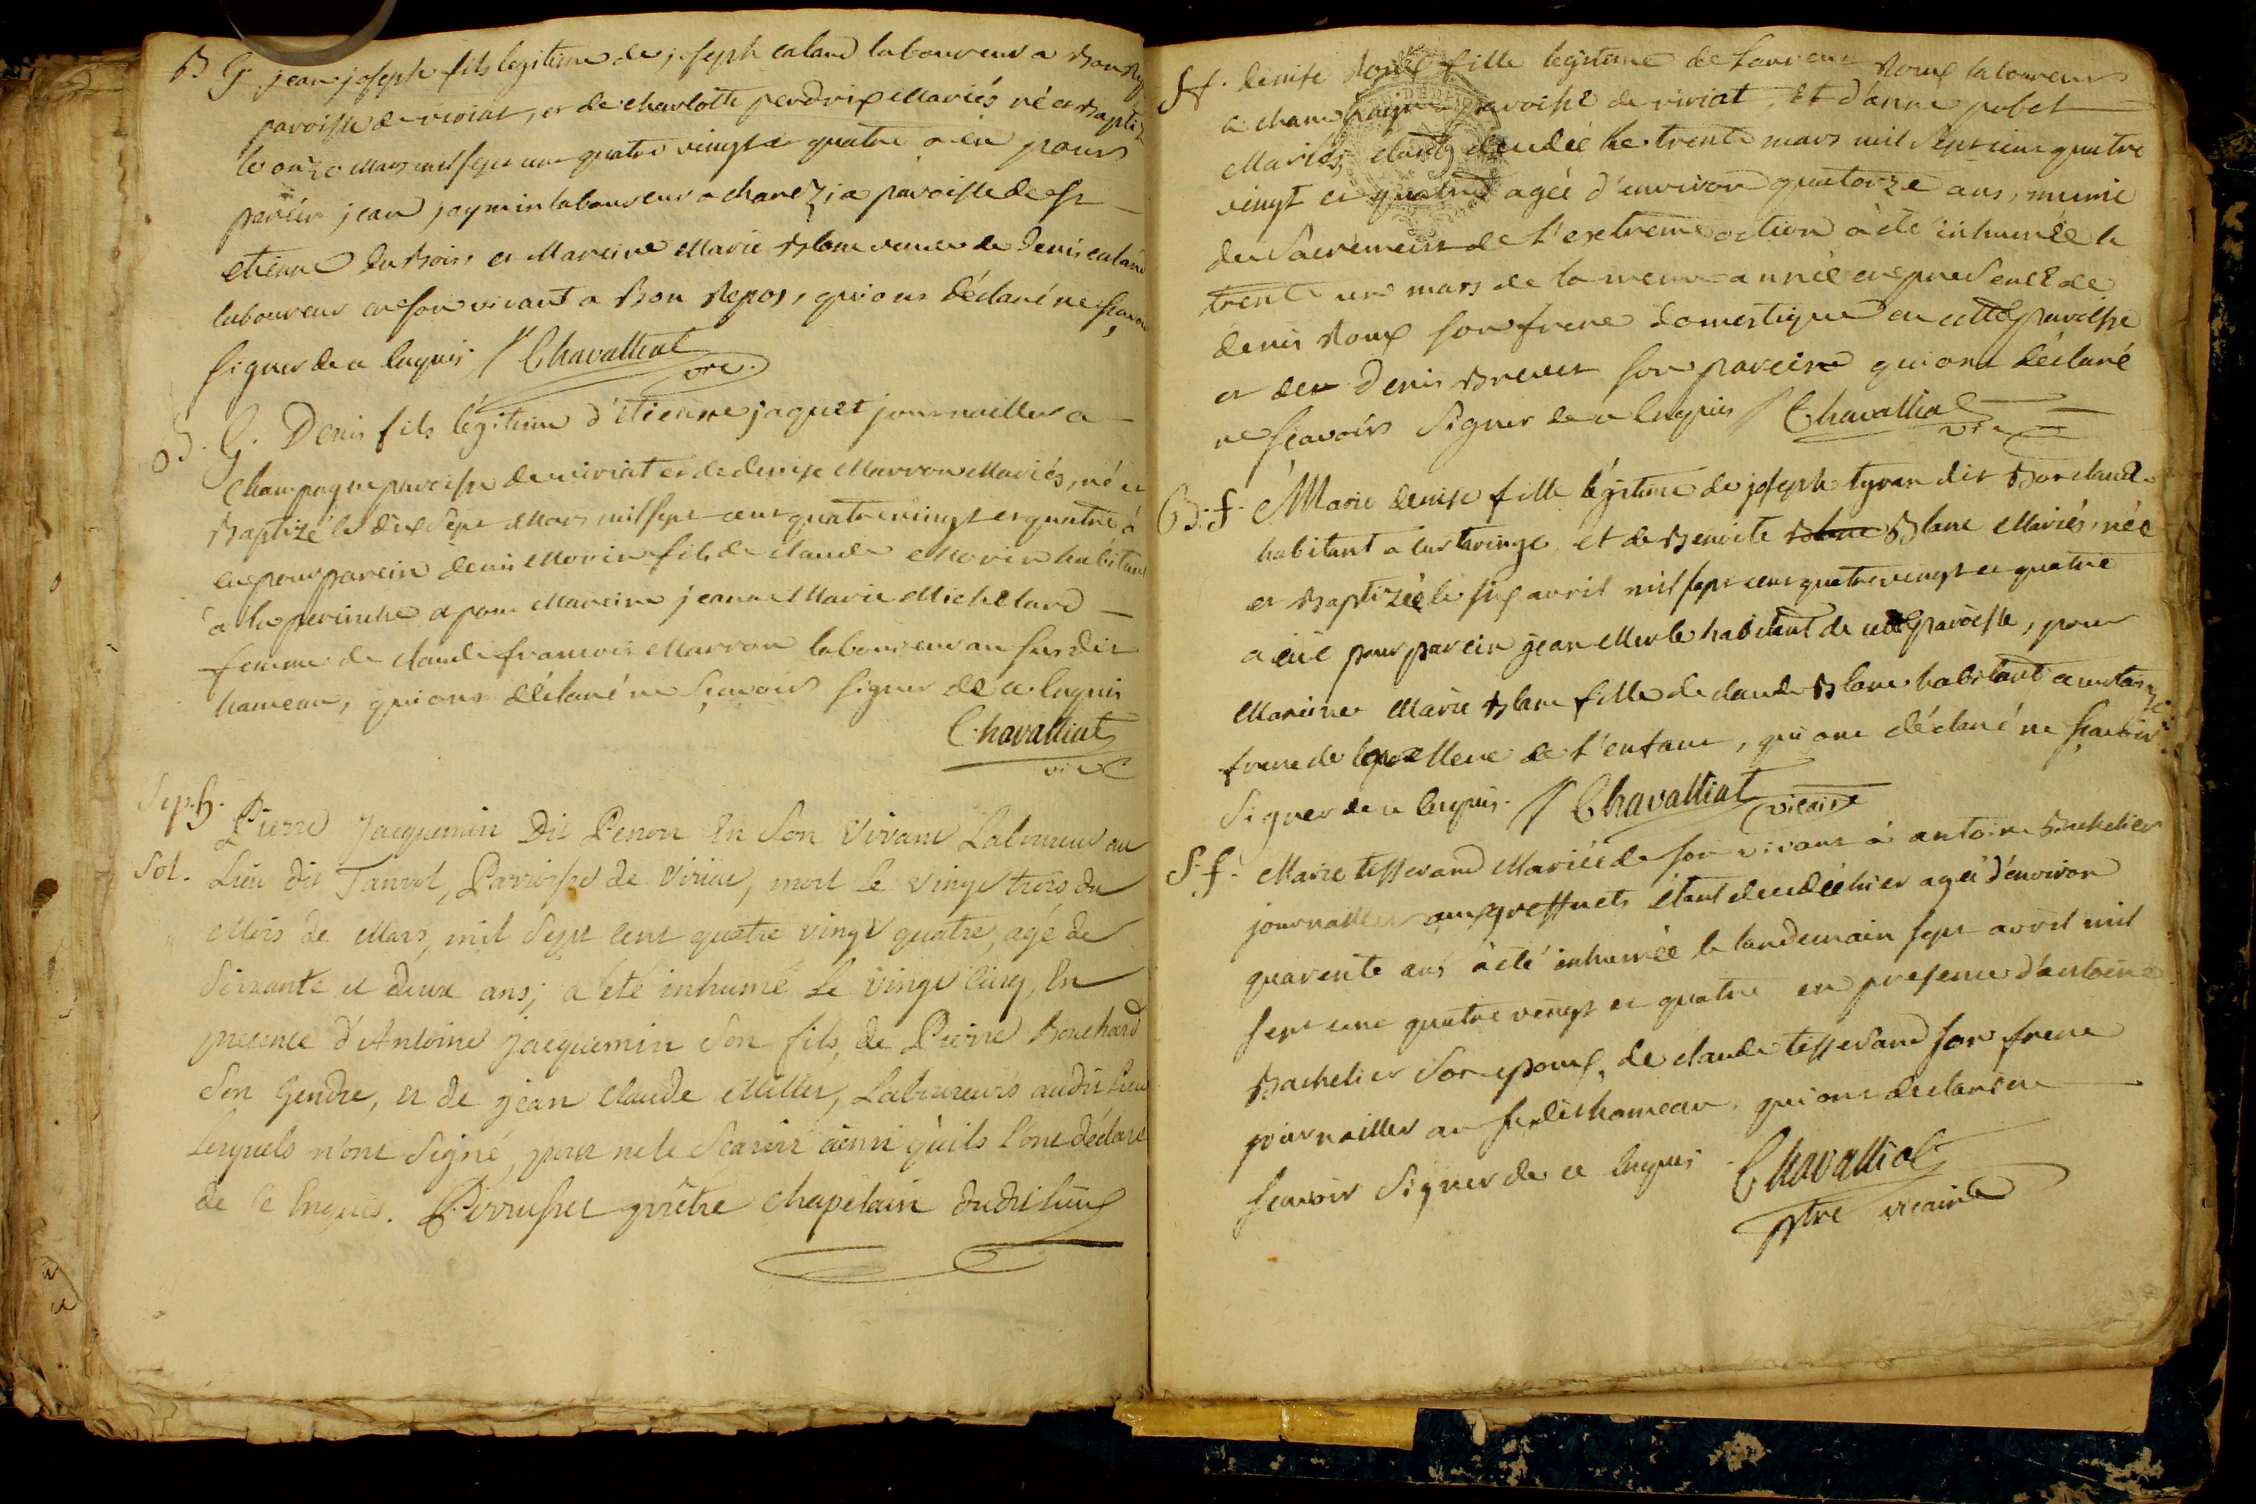 B G jean joseph fils legitime de joseph caland laboureur a Bon Rep
paroisse de viriat, et de charlotte perdrix Mariés né et Baptizé
le onze Mars mil sept cent quatre vingt et quatre a eu pour
parein jean jaymin laboureur a chanezia paroisse de St
etienne du Bois et Mareine Marie Blanc veuve de Denis caland
laboureur en son vivant a Bon Repos, qui ont déclaré ne sçavoir
signer de ce Enquis // Chavalliat
vre.
B. G. Denis fils légitime d'étienne jaquet journaillier a
Champagne paroisse de viriat et de denise Marron Mariés, né et
Baptizé le dix sept Mars mil sept cent quatre vingt et quatre à
eu pour parein denis Morin fils de claude Morin habitant
à la perinche et pour Mareine jeanne Marie Michelard
femme de claude francois Marron laboureur au susdit
hameau, qui ont déclaré ne sçavoir signer de ce Enquis
Chavalliat
vire
Sep. h. Pierre Jacquemin Dit Penon En Son Vivant Laboureur au
Sol. Lieu dit Tanvol, Parroisse de Viriat, mort le vingt trois du
Mois de Mars, mil Sept cent quatre vingt quatre, agé de
Soixante et deux ans; a été inhumé Le Vingt Cinq, En
presence d'Antoine jacquemin Son fils, de Pierre Bouchard
Son Gendre, et de jean claude Millet, Laboureurs audit Lieu
Lesquels n'ont Signé, pour ne le Scavoir ainsi qu'ils l'ont déclaré
de ce Enquis. Perrusset prêtre chapelain dudit lieu
S f. denise Roux fille legitime de Laurent Roux laboureur
a champagne paroisse de viriat, et d'anne pobel
Mariés, étant decedée le trente mars mil sept cent quatre
vingt et quatre agée d'environ quatorze ans, munie
du Sacrement de l'extreme onction à été inhumée le
trente un mars de la meme année en presence de
denis Roux son frere domestique en cette paroisse
et de denis Brevet son parein qui ont déclaré
ne sçavoir signer de ce Enquis / Chavalliat
vire
B. f. Marie denise fille légitime de joseph tyran dit Bon claude
habitant a curtaringe, et de Benoite Blanc Blanc Mariés, née
et Baptizée le six avril mil sept cent quatre vingt et quatre
a eu pour parein jean Merle habitant de cette paroisse, pour
Mareine Marie Blanc fille de claude Blanc habitant a curtaringe
frere de la Mere de l'enfant, qui ont déclaré ne sçavoir
signer de ce Enquis. // Chavalliat
vicaire
S. f. Marie tisserand Mariée de son vivant à antoine Bachelier
journaillier aux greffets étant decedée hier agée d'environ
quarente ans à été inhumée le landemain sept avril mil
sept cent quatre vingt et quatre en presence d'antoine
Bachelier Son epoux, de claude tisserand son frere
journaillier au susdit hameau, qui ont declaré ne
scavoir signer de ce Enquis. Chavalliat
ptre vicaire